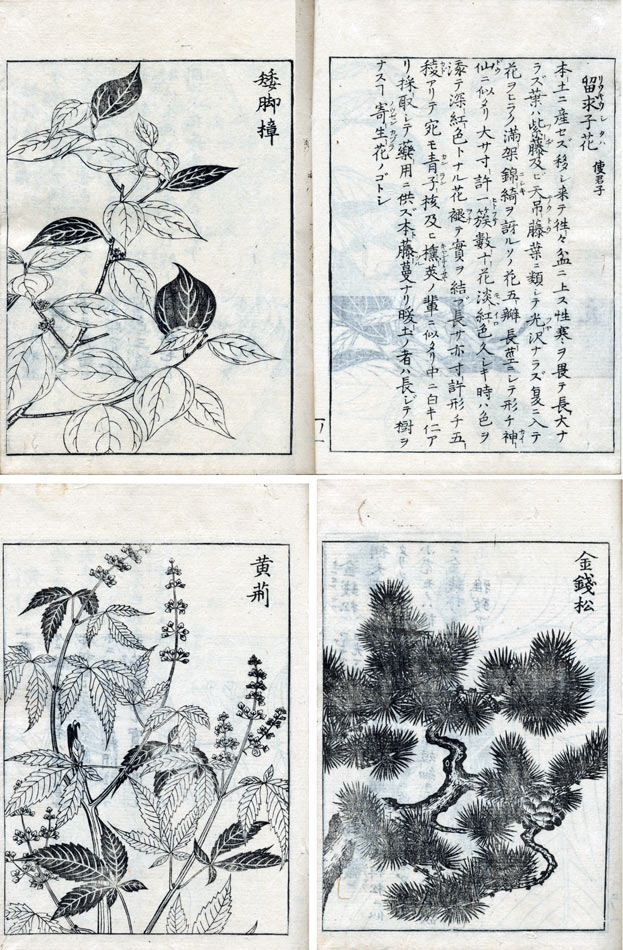 留求子花 使君子
本土ニ産セズ移シ来テ往々盆ニ上ス性寒ヲ畏テ長大ナ
ラズ葉ハ紫藤及ヒ天吊藤葉ニ類シテ光沢ナラズ夏ニ入テ
花ヲヒラク満架錦綺ヲ訝ルソノ花五瓣長莖ニシテ形チ神
仙ニ似タリ大サ寸許一簇數十花淡紅色久シキ時ハ色ヲ
添テ深紅色トナル花褪テ實ヲ結ブ長サ亦寸許形チ五
稜アリテ宛モ青子核及ヒ莢ノ輩ニ似タリ中ニ白キ仁ア
リ採取シテ藥用ニ供ズ本藤蔓ナリ暖土ノ者ハ長シテ樹ヲ
ナスヿ寄生花ノゴトシ
矮脚樟
金錢松
黄荊